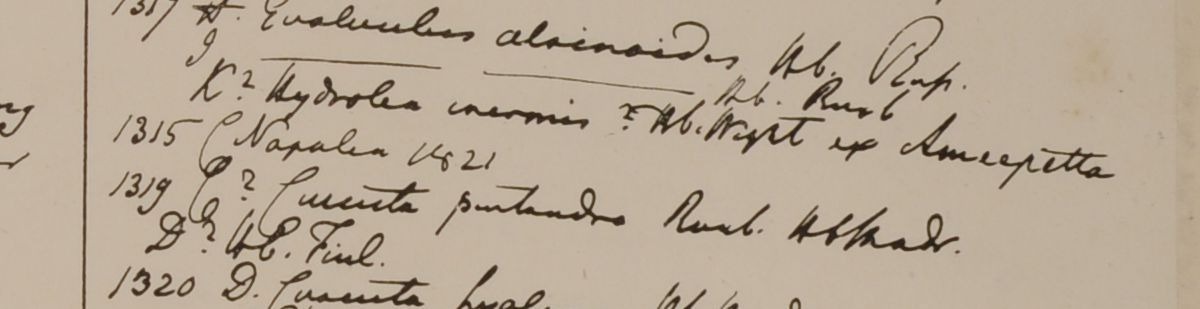 1317 H. Evolvulus alsinoides Hb. Rup.
I ——— ——— Hb. Roxb
K? Hydrolea inermis? Hb. Wight ex Ameepetta
1315 C Napalea 1821
1319 C? Cuscuta pentandra Roxb. Hb Madr.
D? HE. Finl.
1320 D. Cuscuta